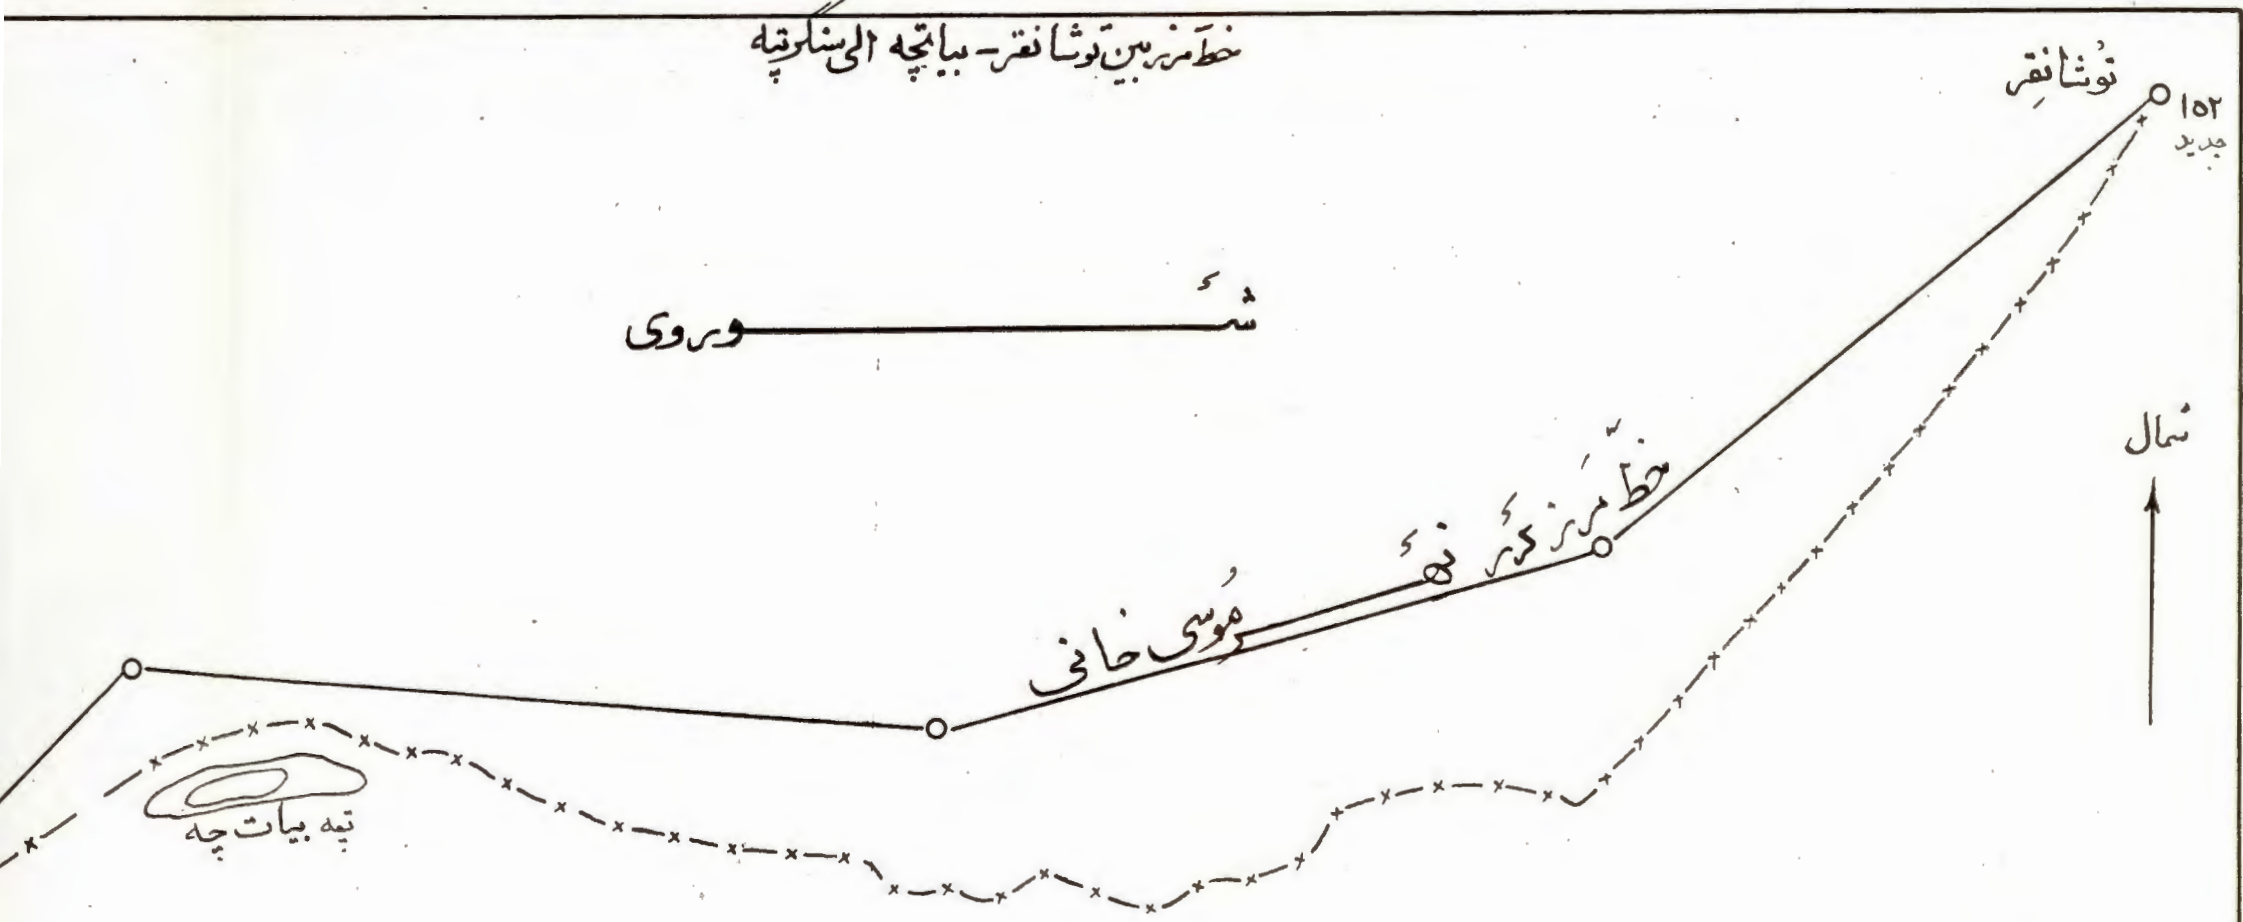 خط مرز بین توشانقر - بیاتچه الی سنگرتپه
تُوشانقِر
۱۵۲
جدید
شوروی
شمال
خطّ مرز
مُوسی خانی
تپه بیات چه